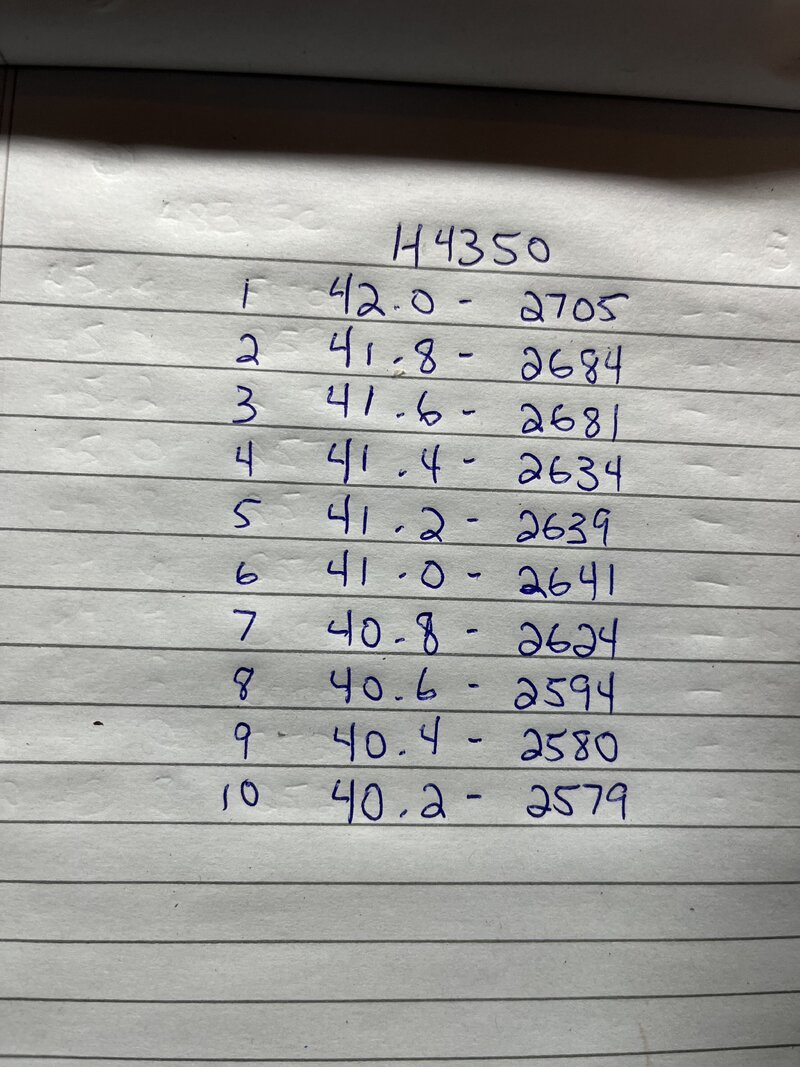 H4350
1 42.0 - 2705
2 41.8 - 2684
3 41.6 - 2681
4 41.4 - 2634
5 41.2 - 2639
6 41.0 - 2641
7 40.8 - 2624
8 40.6 - 2594
9 40.4 - 2580
10 40.2 - 2579